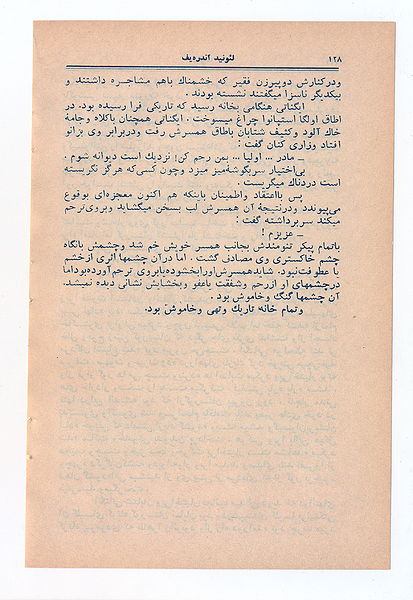 ۱۲۸ لئونید آندره‌یف
ودرکنارش دوپیرزن فقیر که خشمناك باهم مشاجره داشتند و
بیکدیگر ناسزا میگفتند نشسته بودند .
ایگناتی هنگامی بخانه رسید که تاریکی فرا رسیده بود. در
اطاق اولگا استپانوا چراغ میسوخت . ایگناتی همچنان باکلاه وجامهٔ
خاك آلود وکثیف شتابان باطاق همسرش رفت ودربرابر وی بزانو
افتاد وزاری کنان گفت :
ـ مادر ... اولیا ... بمن رحم کن! نزدیك است دیوانه شوم .
بی‌اختیار سربگوشهٔ‌میز میزد وچون کسی‌که هرگز نگریسته
است دردناك میگریست .
پس بااعتقاد واطمینان باینکه هم اکنون معجزه‌ای بوقوع
می‌پیوندد ودرنتیجهٔ آن همسرش لب بسخن میگشاید وبروی‌ترحم
میکند سربرداشته گفت :
ـ عزیزم !
باتمام پیکر تنومندش بجانب همسر خویش خم شد وچشمش بانگاه
چشم خاکستری وی مصادف گشت . اما درآن چشمها اثری ازخشم
یا عطوفت‌نبود. شایدهمسرش‌اورابخشوده‌بابروی ترحم‌آورده‌بوداما
درچشمهای او ازرحم وشفقت یاعفو وبخشایش نشانی دیده نمیشد.
آن چشمها گنگ وخاموش بود .
وتمام خانه تاریك وتهی وخاموش بود.